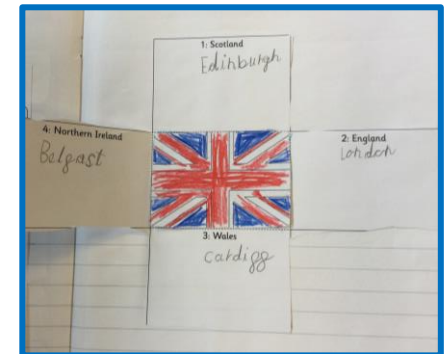 1: Scotland
Edinburgh
4: Northern Ireland
Belgast
2: England
London
3: Wales
cardigg